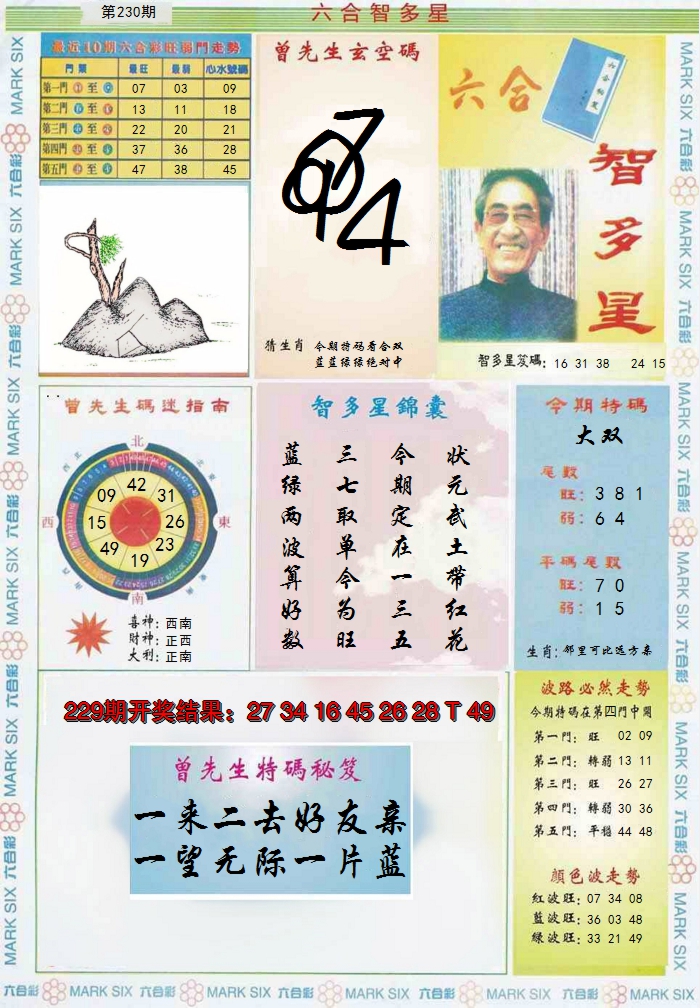 第230期
六合智多星
最近10期六合彩旺弱門走勢
門類 最旺 最弱 心水號碼
第一門 至 07 03 09
第二門 至 13 11 18
第三門 至 22 20 21
第四門 至 37 36 28
第五門 至 47 38 45
曾先生玄空碼
猜生肖 今期特码看合双
蓝蓝绿绿绝对中
六合
智多星
智多星笈碼: 16 31 38 24 15
曾先生碼迷指南
北
西
東
南
09 42 31
15 26
49 19 23
喜神: 西南
財神: 正西
大利: 正南
智多星錦囊
状元武土带红花
今期定在一三五
三七取单今为旺
蓝绿两波算好数
今期特碼
大双
尾數
旺: 3 8 1
弱: 6 4
平碼尾數
旺: 7 0
弱: 1 5
生肖: 邻里可比远方亲
229期开奖结果: 27 34 16 45 26 28 T 49
曾先生特碼秘笈
一来二去好友亲
一望无际一片蓝
波路必然走勢
今期特碼在第四門中開
第一門: 旺 02 09
第二門: 轉弱 13 11
第三門: 旺 26 27
第四門: 轉弱 30 36
第五門: 平穩 44 48
顏色波走勢
紅波旺: 07 34 08
藍波旺: 36 03 48
綠波旺: 33 21 49
MARK SIX 六合彩